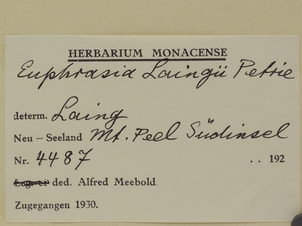 HERBARIUM MONACENSE
Euphrasia Laingii Petrie
determ. Laing
Neu – Seeland Mt. Peel Südinsel
Nr. 4487 . . 192
ded. Alfred Meebold
Zugegangen 1930.